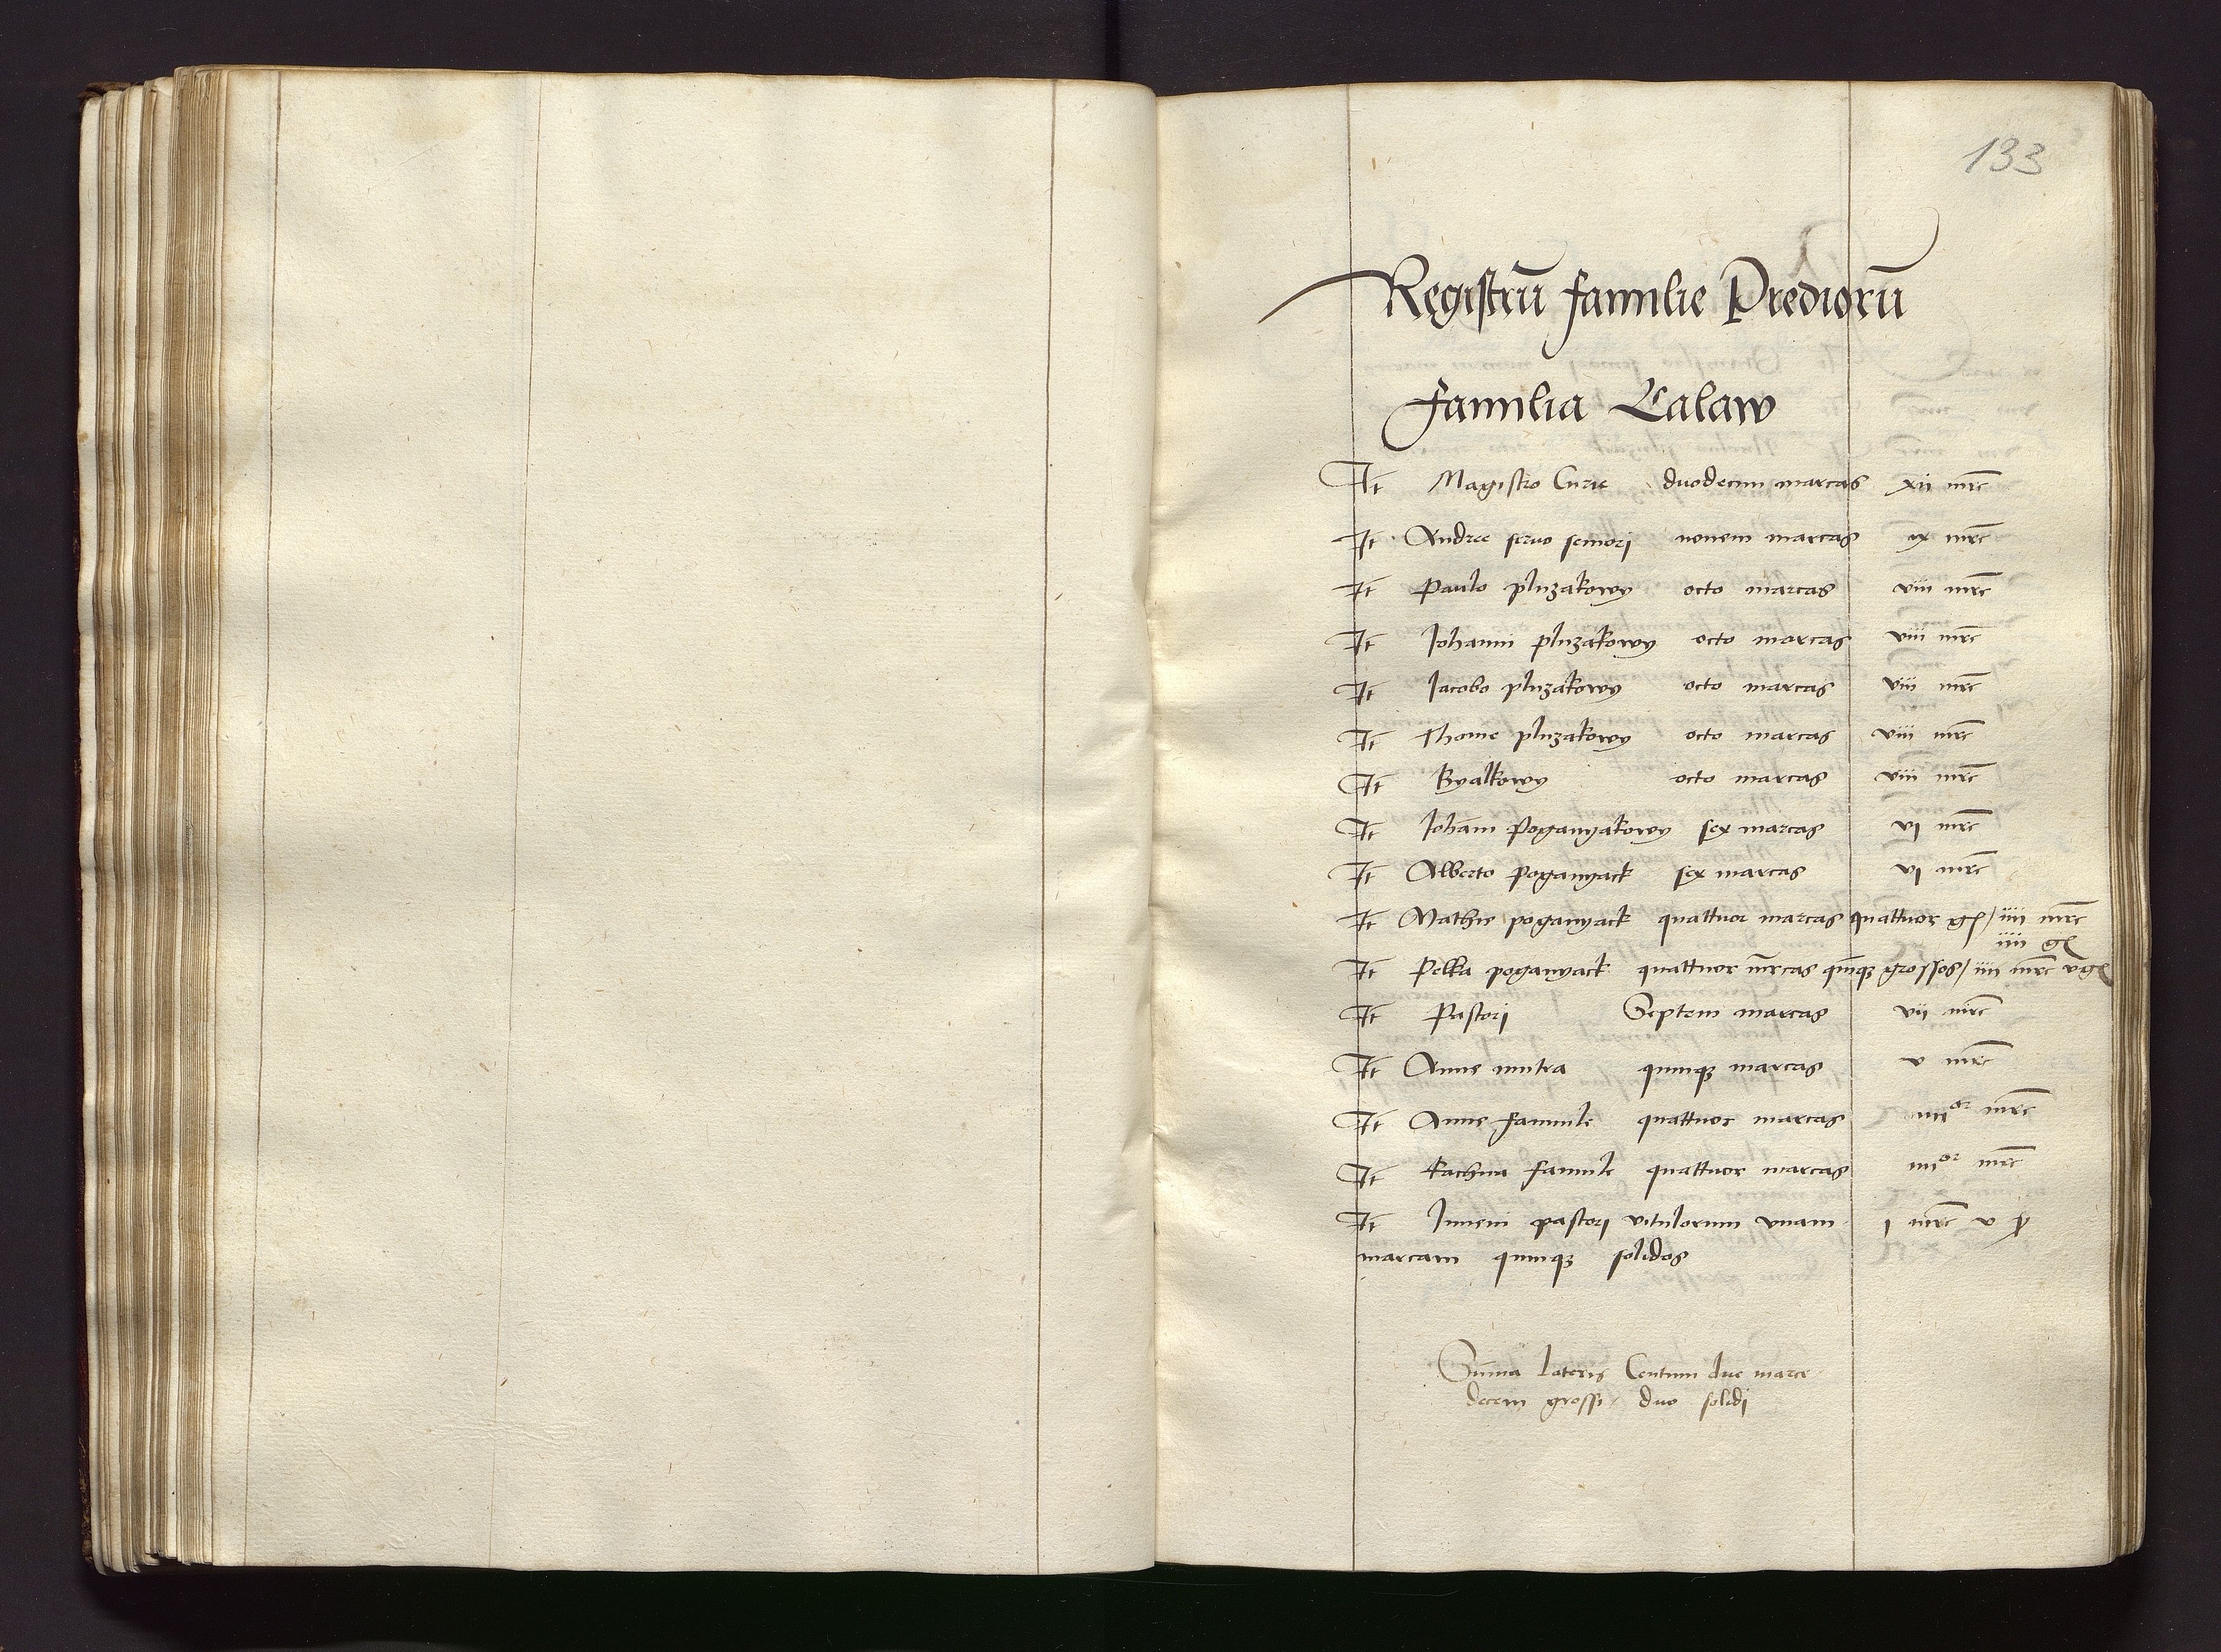 133
Registrū familie Prediorū
Familia Calaw
It Magistro Curie duodecim marcas xii mrc
It Andree servo seniori novem marcas ix mrc
It Paulo pluzakowy octo marcas viii mrc
It Johanni pluzakowy octo marcas viii mrc
It Jacobo pluzakowy octo marcas viii mrc
It Thome pluzakowy octo marcas viii mrc
It Byalkowy octo marcas viii mrc
It Johāni Poganyakowy sex marcas vj mrc
It Alberto Poganyack sex marcas vj mrc
It Mathie poganyack quattuor marcas quattuor gſ / iiii mrc
iiii gſ
It Pelka poganyack quattuor mrcas qnīqȝ grossos / iiii mrc v gſ
It Pastorj Septem marcas vii mrc
It Anne nutrx quinqȝ marcas v mrc
It Anne famule quattuor marcas iiiior mrc
It Kachna famule quattuor marcas iiiior mrc
It Juveni pastorj vitulorum vnam j mrc v ẜ
marcam quinqȝ solidos
Sūma lateris Centum due marce
decem grossi / duo solidj